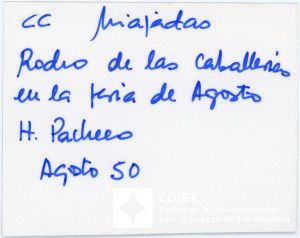 CC Miajadas
Rodeo de las caballerías
en la feria de Agosto
H. Pacheco
Agosto 50
CDIEX